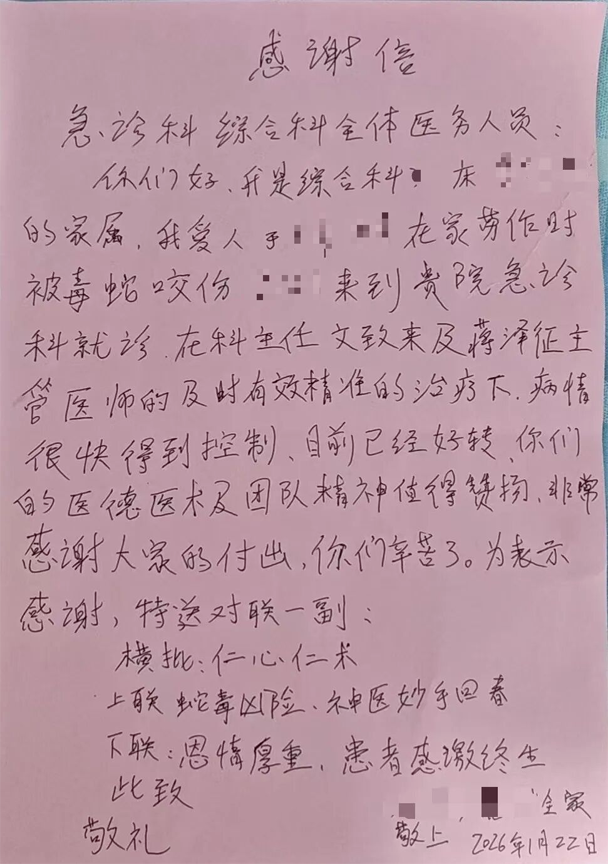 感谢信
急诊科综合科全体医务人员：
你们好、我是综合科 床
的家属，我爱人于 在家劳作时
被毒蛇咬伤 来到贵院急诊
科就诊．在科主任文致来及蒋泽征主
管医师的及时有效精准的治疗下．病情
很快得到控制、目前已经好转、你们
的医德医术及团队精神值得赞扬、非常
感谢大家的付出，你们辛苦了。为表示
感谢，特送对联一副：
横批：仁心仁术
上联 蛇毒凶险、神医妙手回春
下联：恩情厚重，患者感激终生
此致
敬礼
全家
敬上 2026年1月22日